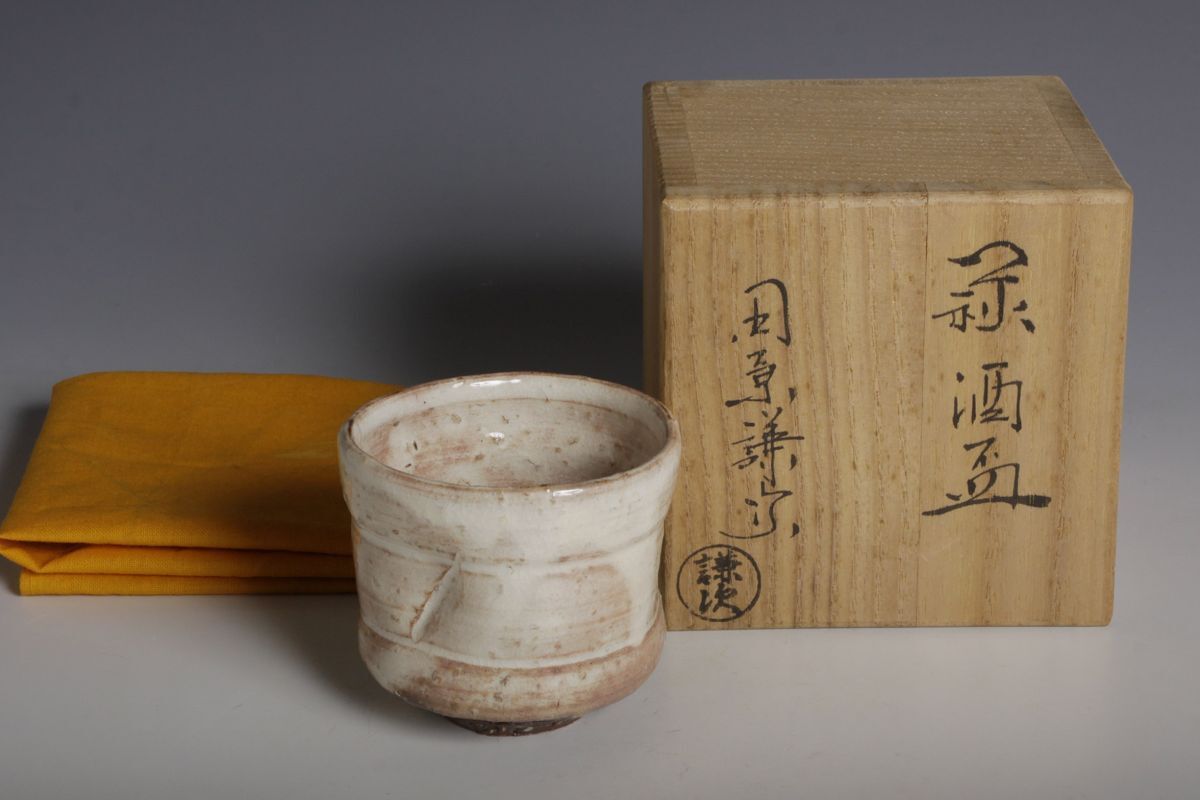 萩酒盃
田原謙次
謙次